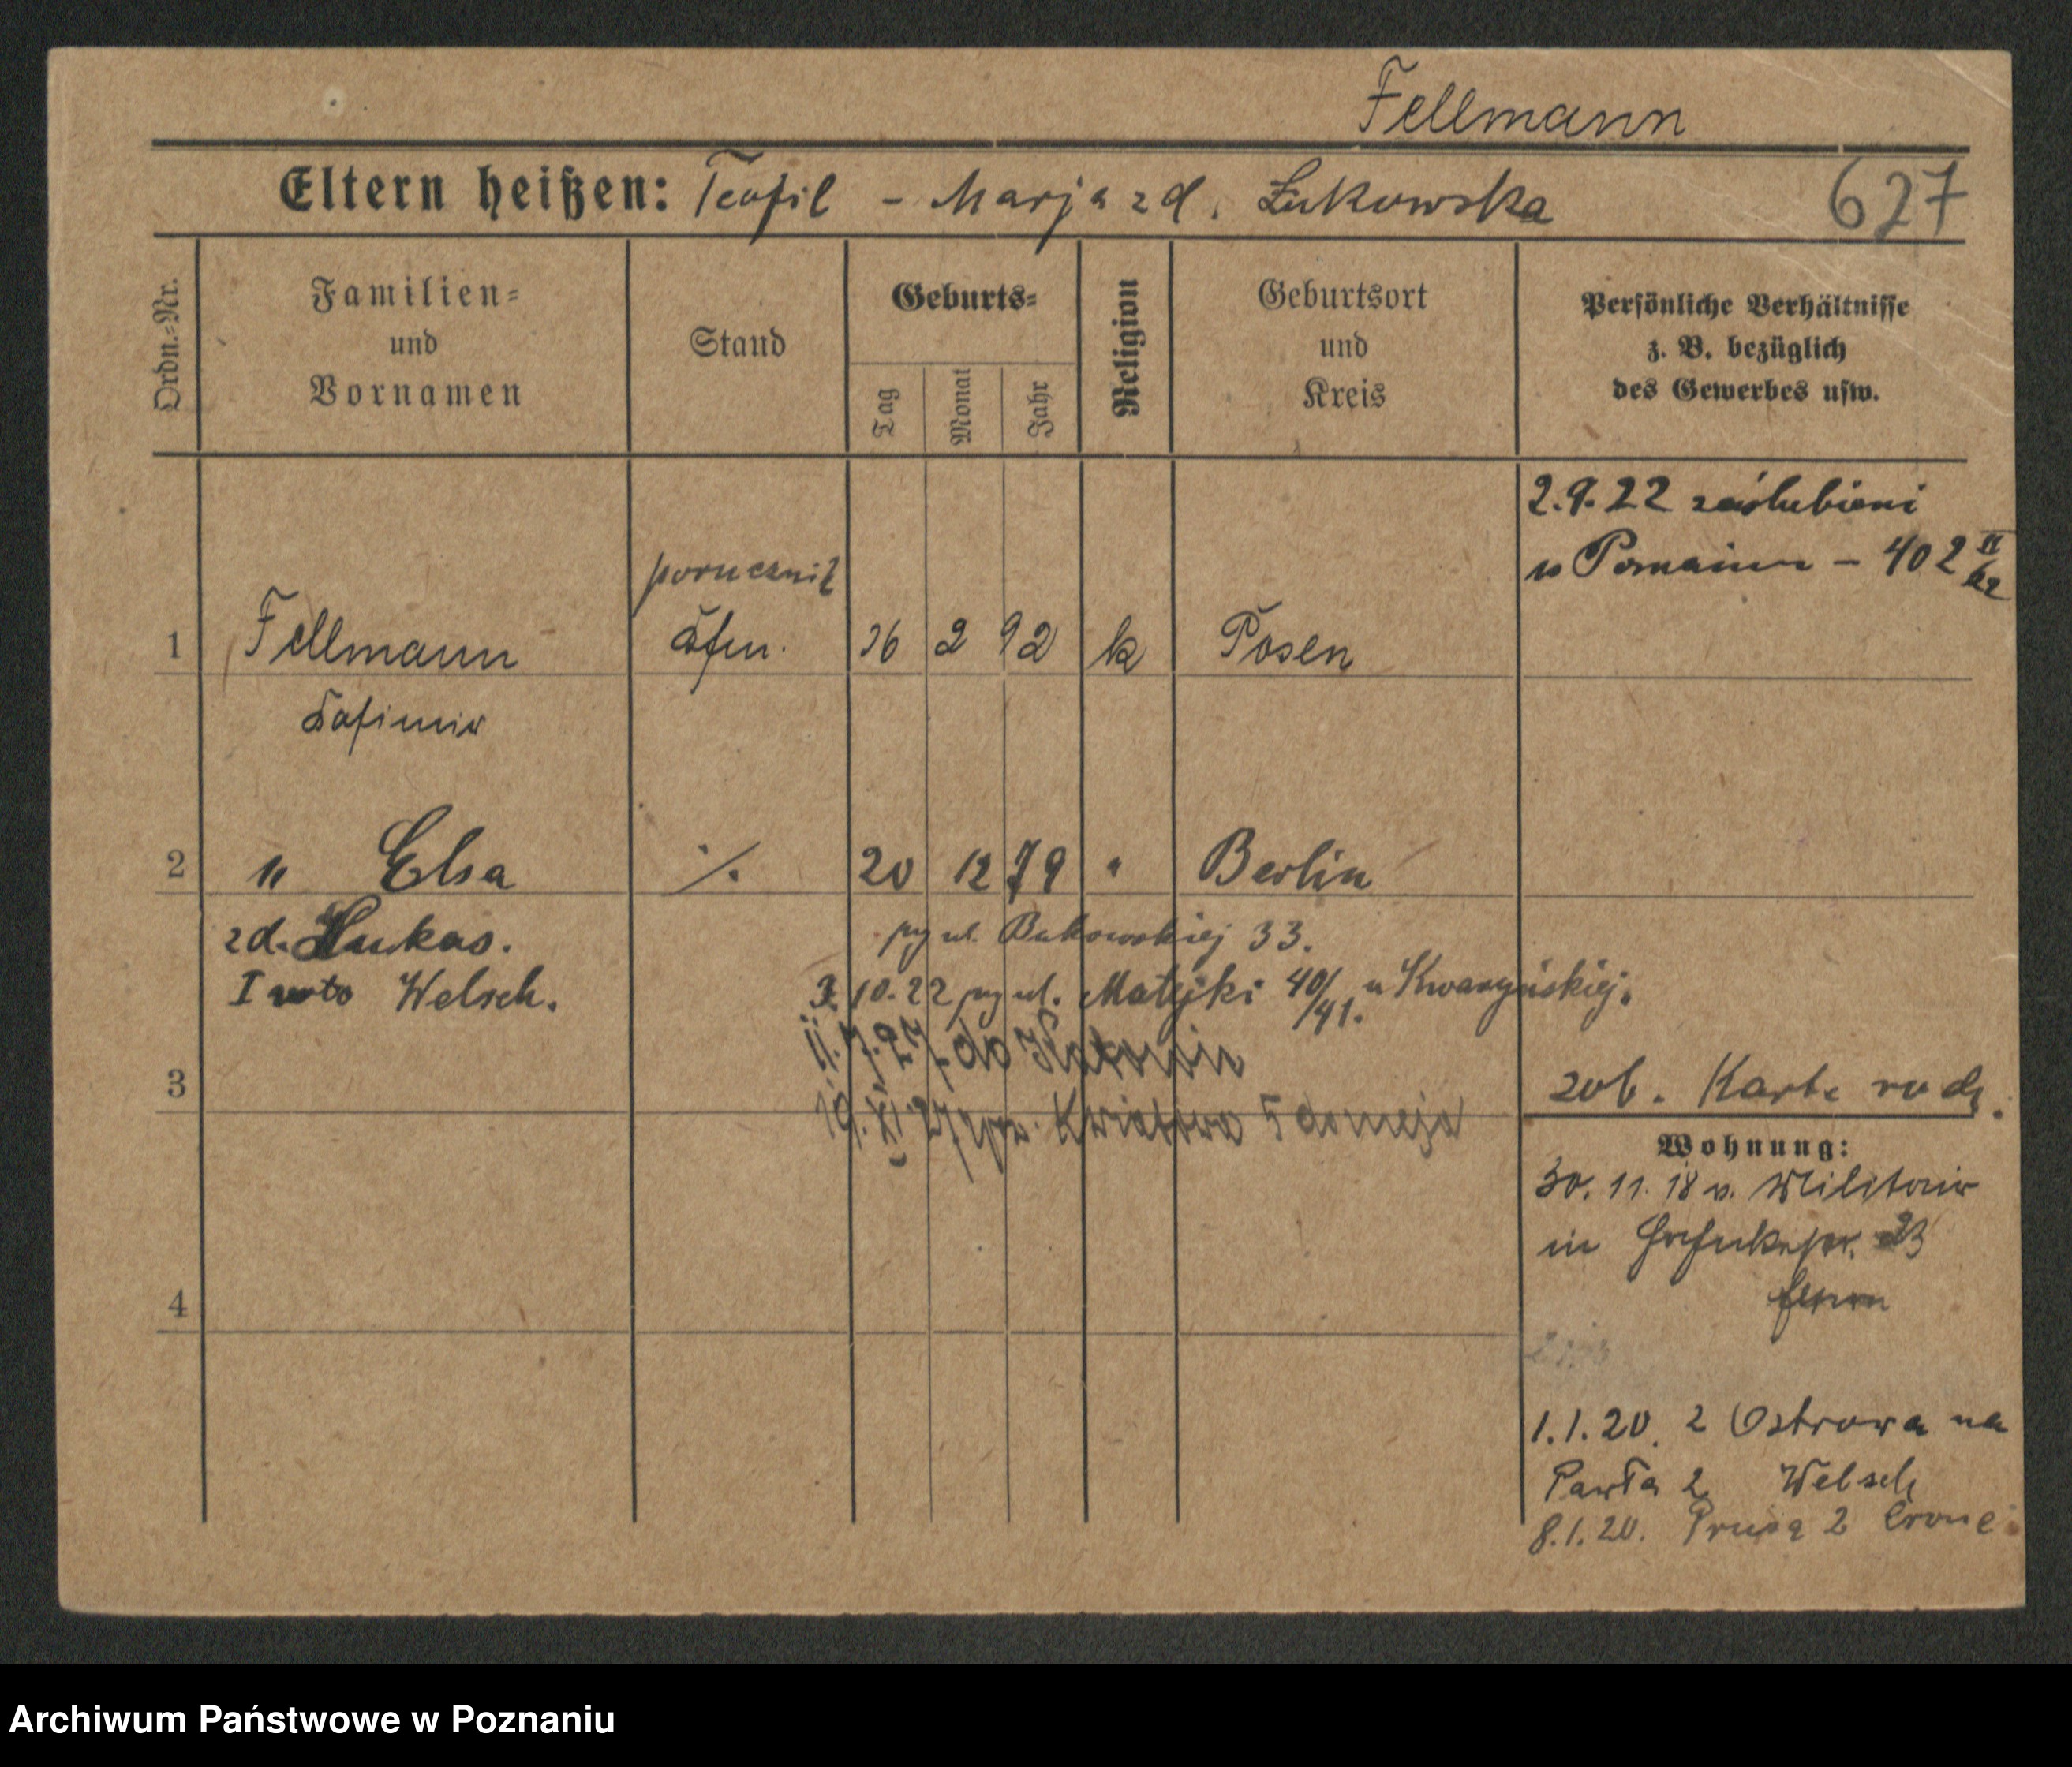 Fellmann
Eltern heißen: Teofil - Marja zd. Łukowska 627
Ordn.-Nr.
Familien-
und
Vornamen
Stand
Geburts-
Tag
Monat
Jahr
Religion
Geburtsort
und
Kreis
Persönliche Verhältnisse
z. B. bezüglich
des Gewerbes usw.
2.9.22 zaślubieni
w Poznaniu - 402 II/22
porucznik
1 Fellmann 2 92 k Posen
Kasimir
2 " Elsa ./. 20 12 79 " Berlin
zd. Lukas.
I voto Welsch.
przy ul. Bukowskiej 33.
3.10.22 przy ul. Matejki 40/41. u
do
3
19.XI.27 Kwiatowa 5
zob. Karte rodz.
Wohnung:
30.11.18 v. Militair
in 23
4
1.1.20. z Ostrowa na
Pawła 2 Welsch
8.1.20. Prusa 2 Crone
Archiwum Państwowe w Poznaniu